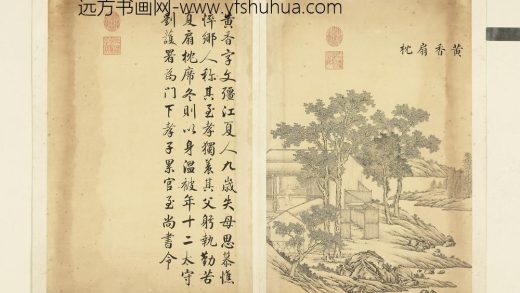 远方书画网-www.yfshuhua.com
黄香扇枕
黄香字文彊江夏人九歲失母思慕憔
悴鄉人称其至孝獨養其父躬執勤苦
夏扇枕席冬則以身温被年十二太守
劉護署為門下孝子累官至尚書令